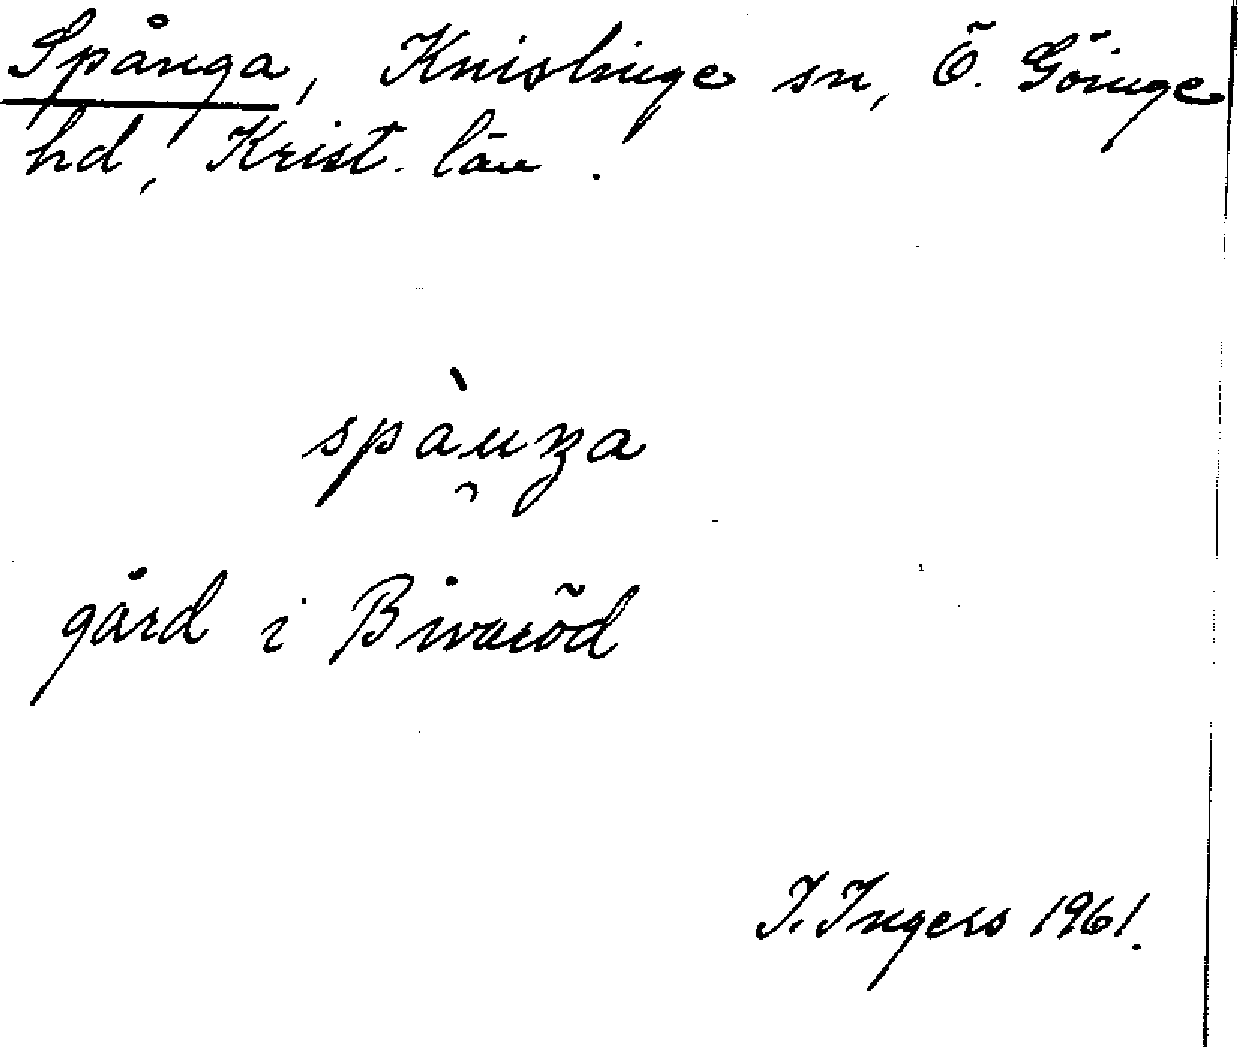 Spånga, Knislinge sn, Ö. Göinge
hd, Krist. län.
spàu̯ŋa
gård i Bivaröd
I. Ingers 1961.